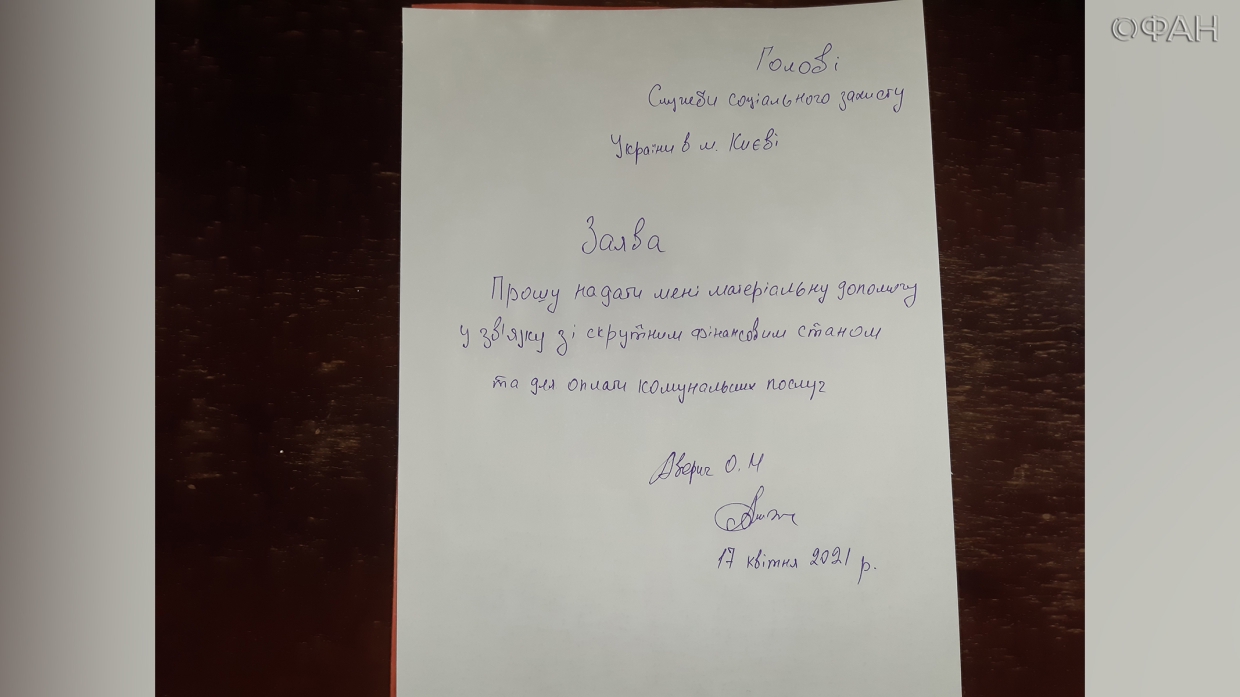 ©ФАН
Голові
Служби соціального захисту
України в м. Києві
Заява
Прошу надати мені матеріальну допомогу
у зв'язку зі скрутним фінансовим станом
та для оплати комунальних послуг
О. М
17 квітня 2021 р.